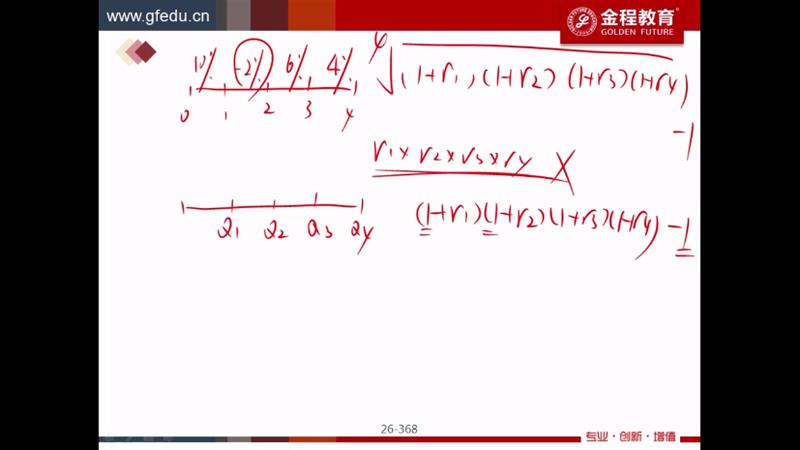 www.gfedu.cn
金程教育
GOLDEN FUTURE
10% -2% 6% 4%
0 1 2 3 4
4√(1+r1)(1+r2)(1+r3)(1+r4) -1
r1×r2×r3×r4 X
Q1 Q2 Q3 Q4
(1+r1)(1+r2)(1+r3)(1+r4) -1
26-368
专业·创新·增值